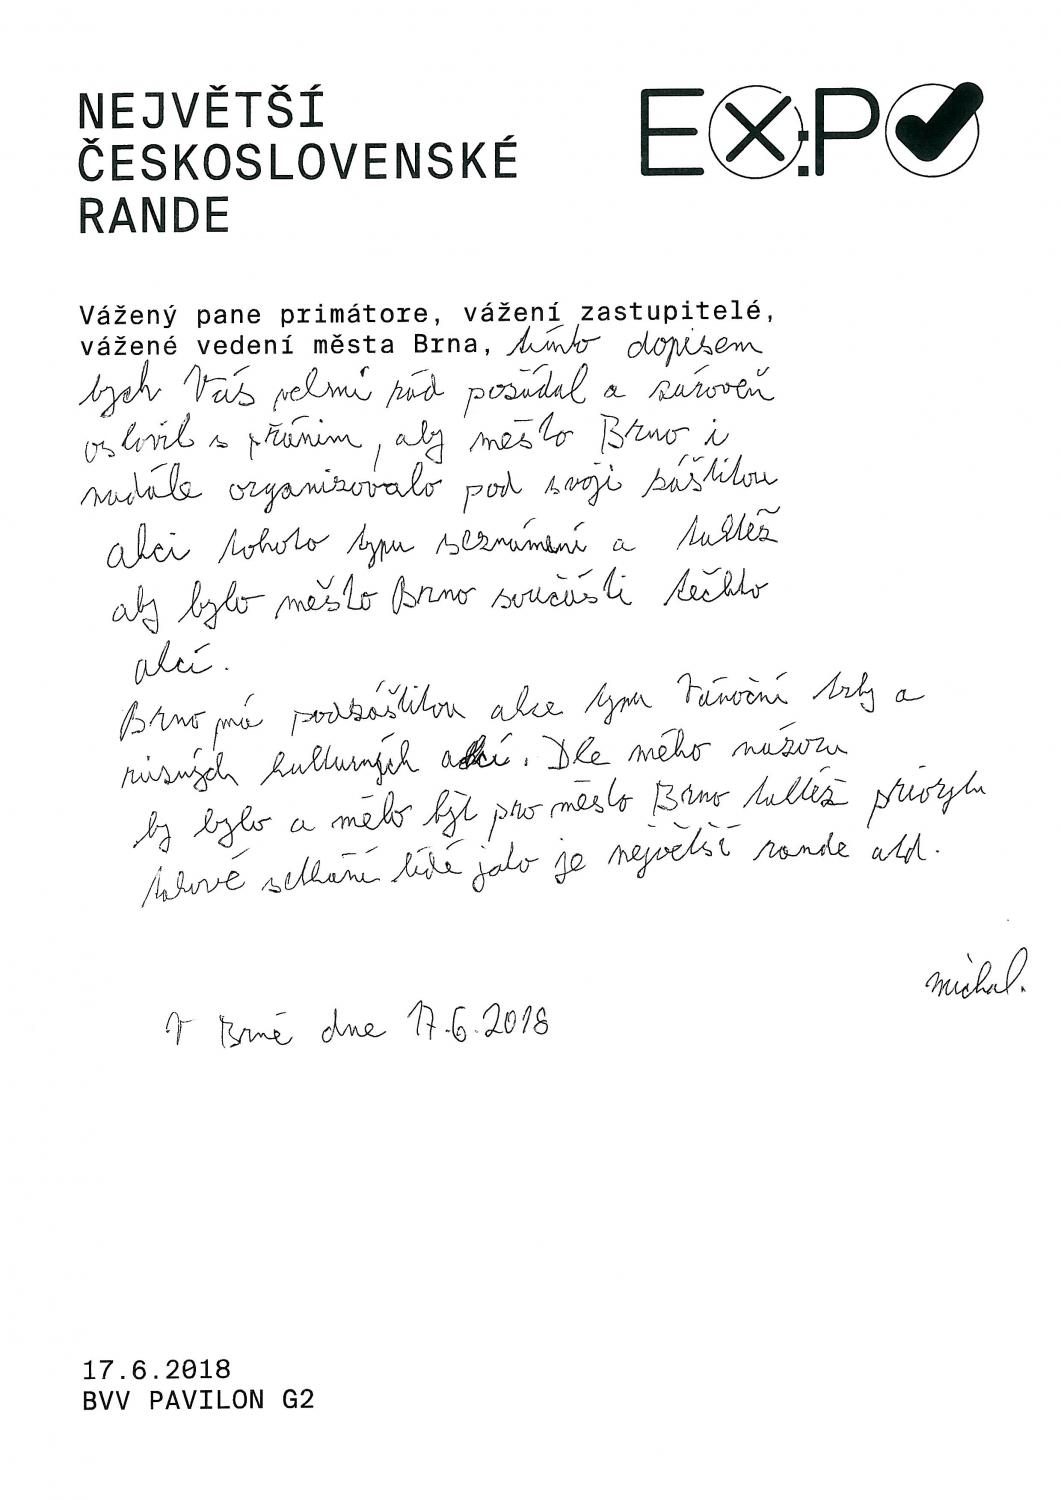 NEJVĚTŠÍ
ČESKOSLOVENSKÉ
RANDE
EX:PO
Vážený pane primátore, vážení zastupitelé,
vážené vedení města Brna, tímto dopisem
bych Vás velmi rád požádal a zároveň
oslovil s přáním, aby město Brno i
nadále organizovalo pod svoji záštitou
akci tohoto typu seznámení a taktéž
aby bylo město Brno součásti těchto
akcí.
Brno má podzáštitou akce typu Vánoční trhy a
různých kulturných akcí. Dle mého názoru
by bylo a mělo být pro město Brno taktéž
takové setkání lidé jako je největší rande atd.
Michal.
V Brně dne 17.6.2018
17.6.2018
BVV PAVILON G2